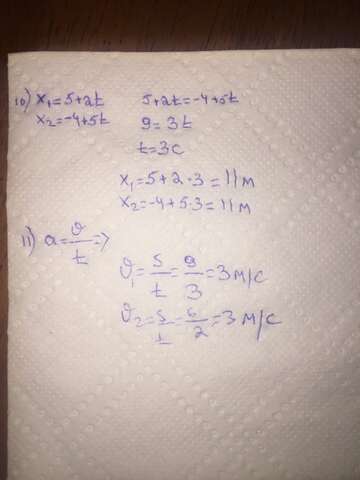 10) x₁=5+2t 5+2t=-4+5t
x₂=-4+5t 9=3t
t=3c
x₁=5+2·3=11м
x₂=-4+5·3=11м
11) a=υ/t=>
υ₁=S/t=9/3=3м/с
υ₂=S/t=6/2=3 м/с